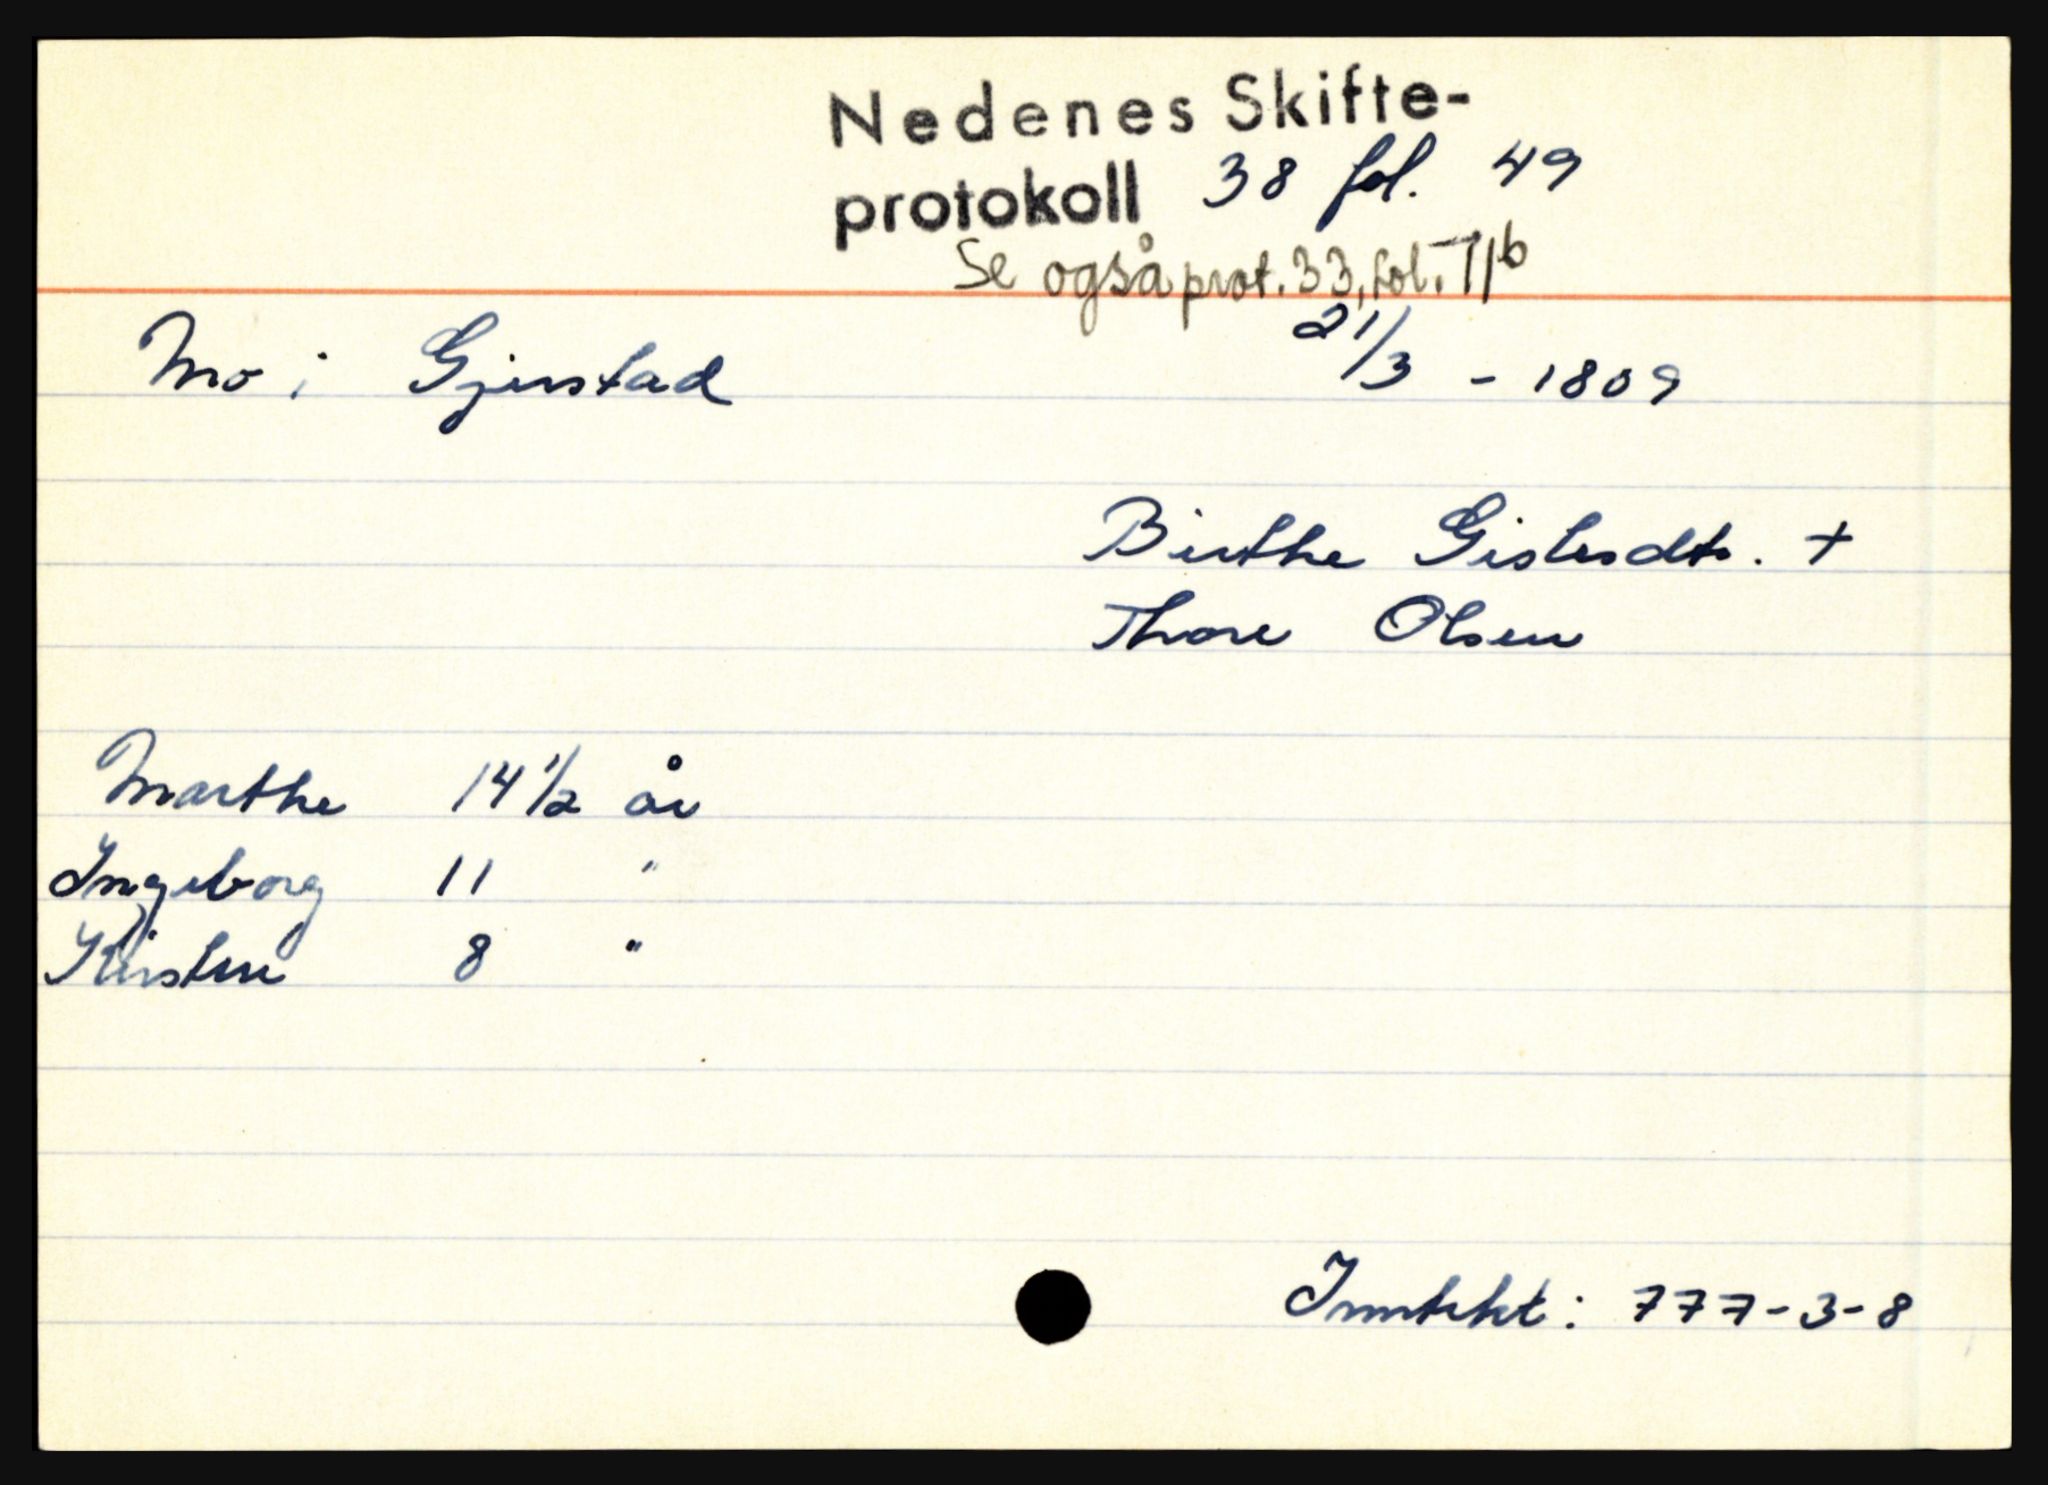 Nedenes Skifte-
protokoll 38 fol. 49
Se også prot. 33, fol. 71b
Mo i Gjerstad 21/3 - 1809
Birthe Gislesdtr. +
Thore Olsen
Marthe 14 1/2 år
Ingeborg 11 "
Kirsten 8 "
Inntekt: 777-3-8